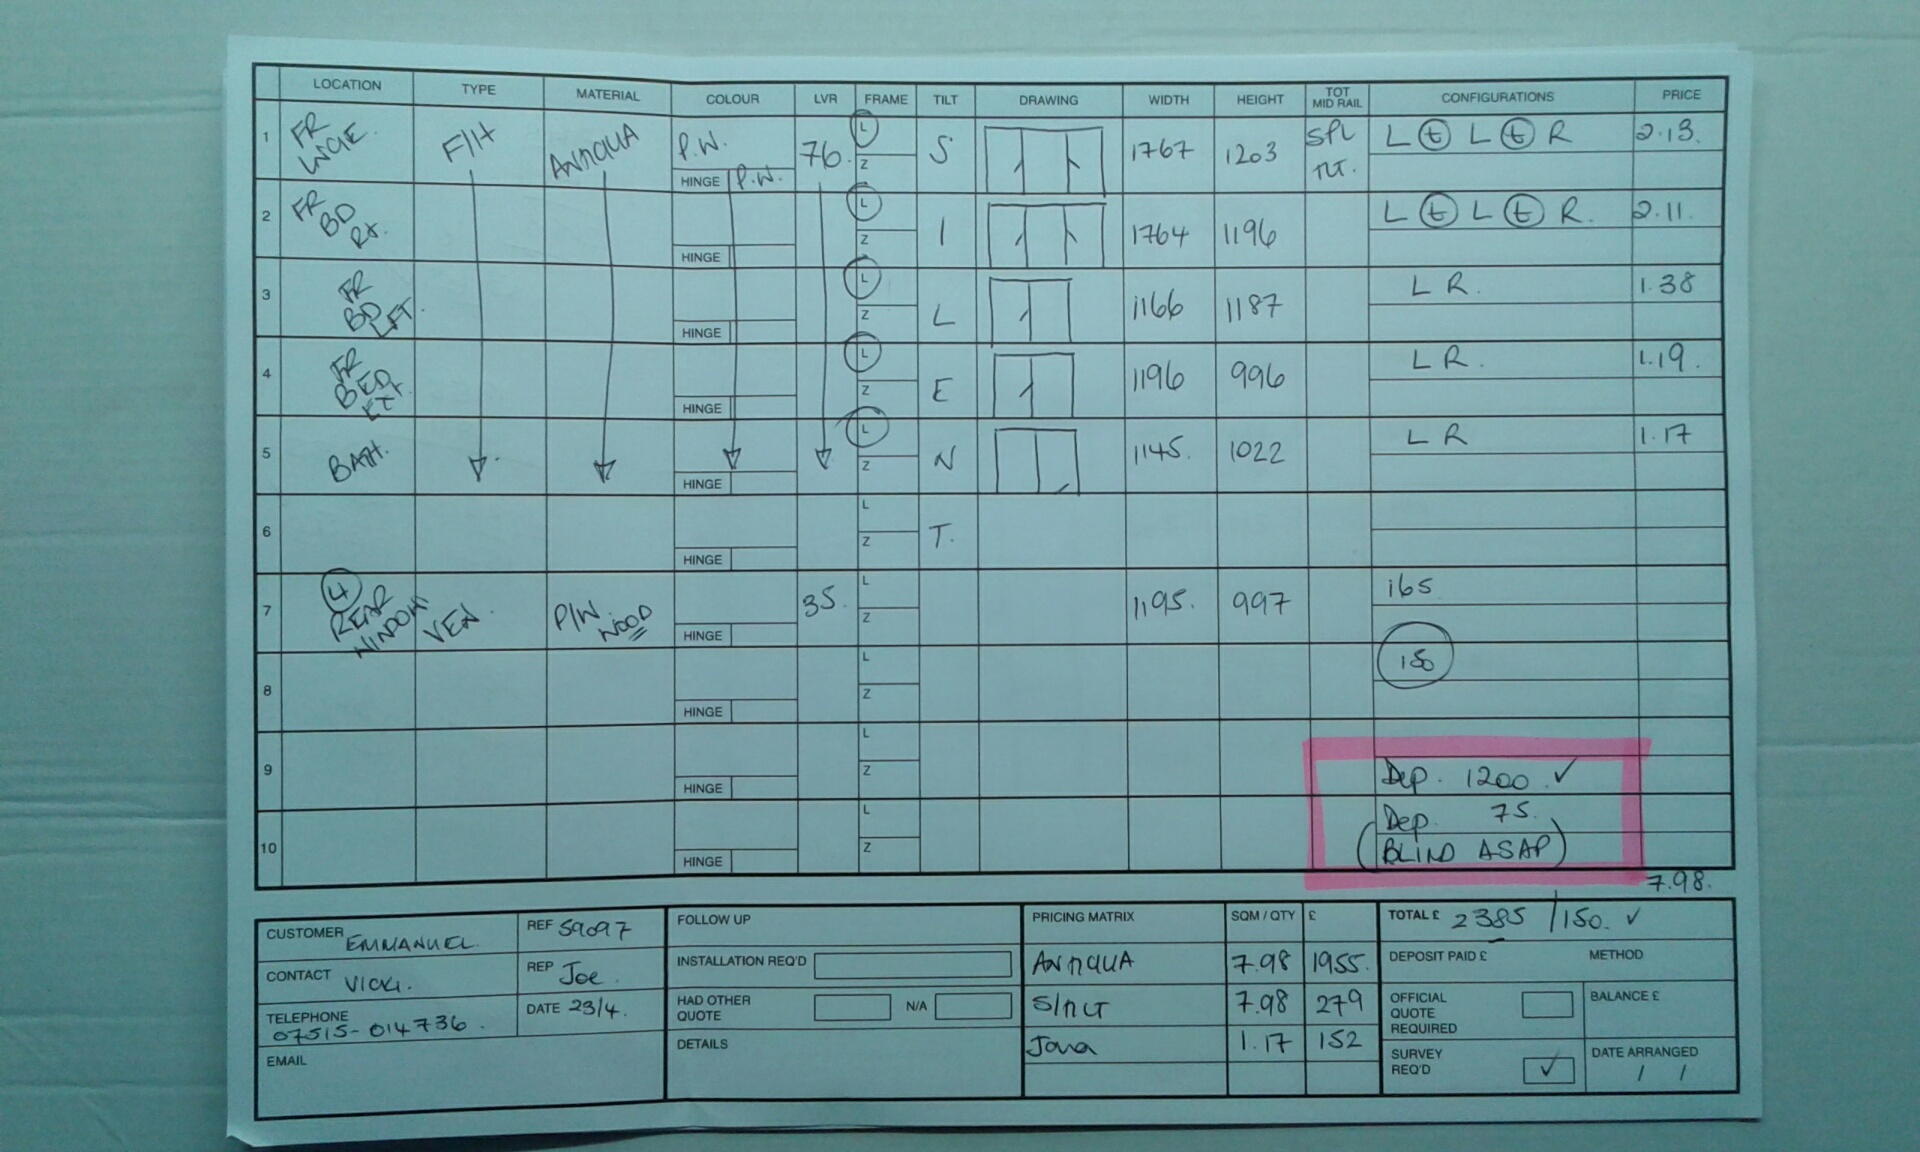 LOCATION TYPE MATERIAL COLOUR LVR FRAME TILT DRAWING WIDTH HEIGHT TOT MID RAIL CONFIGURATIONS PRICE
1 FR F/H ANTIQUA P.W. 76 L S 1767 1203 SPL TLT. L t L t R 2.13
HINGE P.W. Z
2 FR BD Rt. L I 1764 1196 L t L t R. 2.11
HINGE Z
3 FR BD LFT. L L 1166 1187 L R. 1.38
HINGE Z
4 FR BED L E 1196 996 L R. 1.19
HINGE Z
5 BATH. L N 1145. 1022 L R 1.17
HINGE Z
6 L T.
HINGE Z
7 4 REAR WINDOWS VEN. P/W WOOD 35. L 1195. 997 165
HINGE Z
8 L 150
HINGE Z
9 L Dep. 1200 ✓
HINGE Z
10 L Dep. 75.
HINGE Z (BLIND ASAP)
7.98.
CUSTOMER EMMANUEL.
REF 59097
CONTACT VICKI.
REP Joe.
TELEPHONE 07515-014736.
DATE 23/4.
EMAIL
FOLLOW UP
INSTALLATION REQ'D
HAD OTHER QUOTE N/A
DETAILS
PRICING MATRIX SQM / QTY £
ANTIQUA 7.98 1955.
S/TILT 7.98 279
Java 1.17 152
TOTAL £ 2385 /150. ✓
DEPOSIT PAID £ METHOD
OFFICIAL QUOTE REQUIRED
BALANCE £
SURVEY REQ'D ✓
DATE ARRANGED
/ /